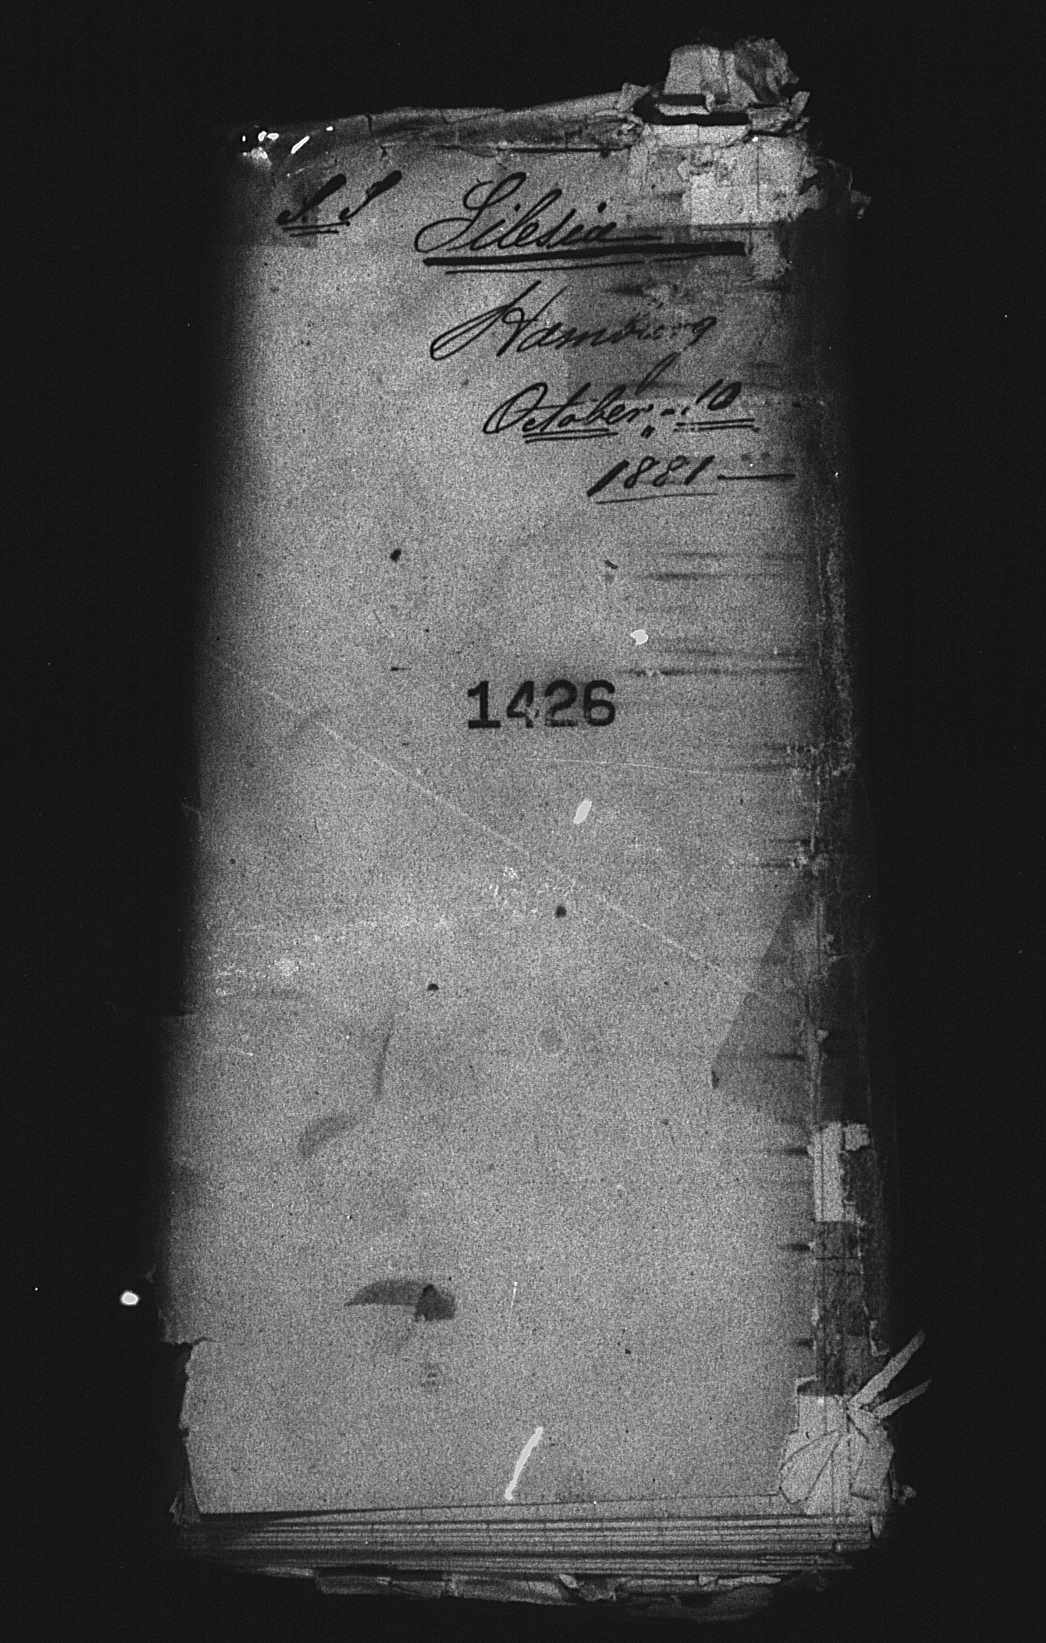 S S Silesia
Hamburg
October 10
1881
1426